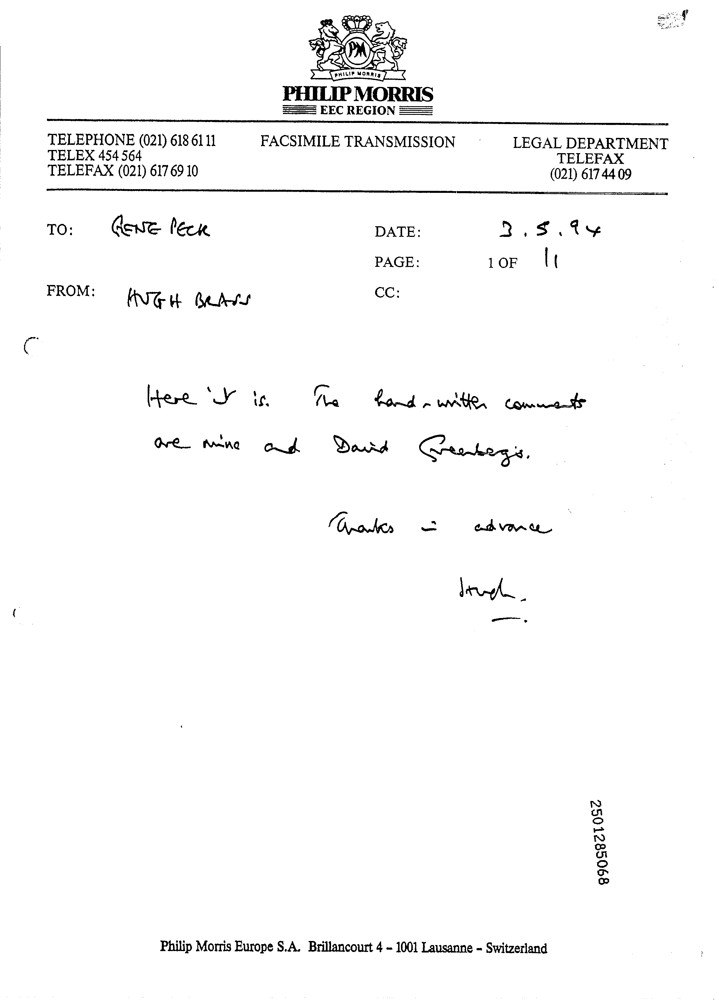 PM
PHILIP MORRIS
PHILIP MORRIS
EEC REGION
TELEPHONE (021) 618 61 11
TELEX 454 564
TELEFAX (021) 617 69 10
FACSIMILE TRANSMISSION
LEGAL DEPARTMENT
TELEFAX
(021) 617 44 09
TO: GENE PECK
DATE: 3.5.94
PAGE: 1 OF 11
FROM: HUGH BRASS
CC:
Here it is. The hand-written comments
are mine and David Greenberg's.
Thanks in advance
Hugh.
2501285068
Philip Morris Europe S.A. Brillancourt 4 – 1001 Lausanne – Switzerland